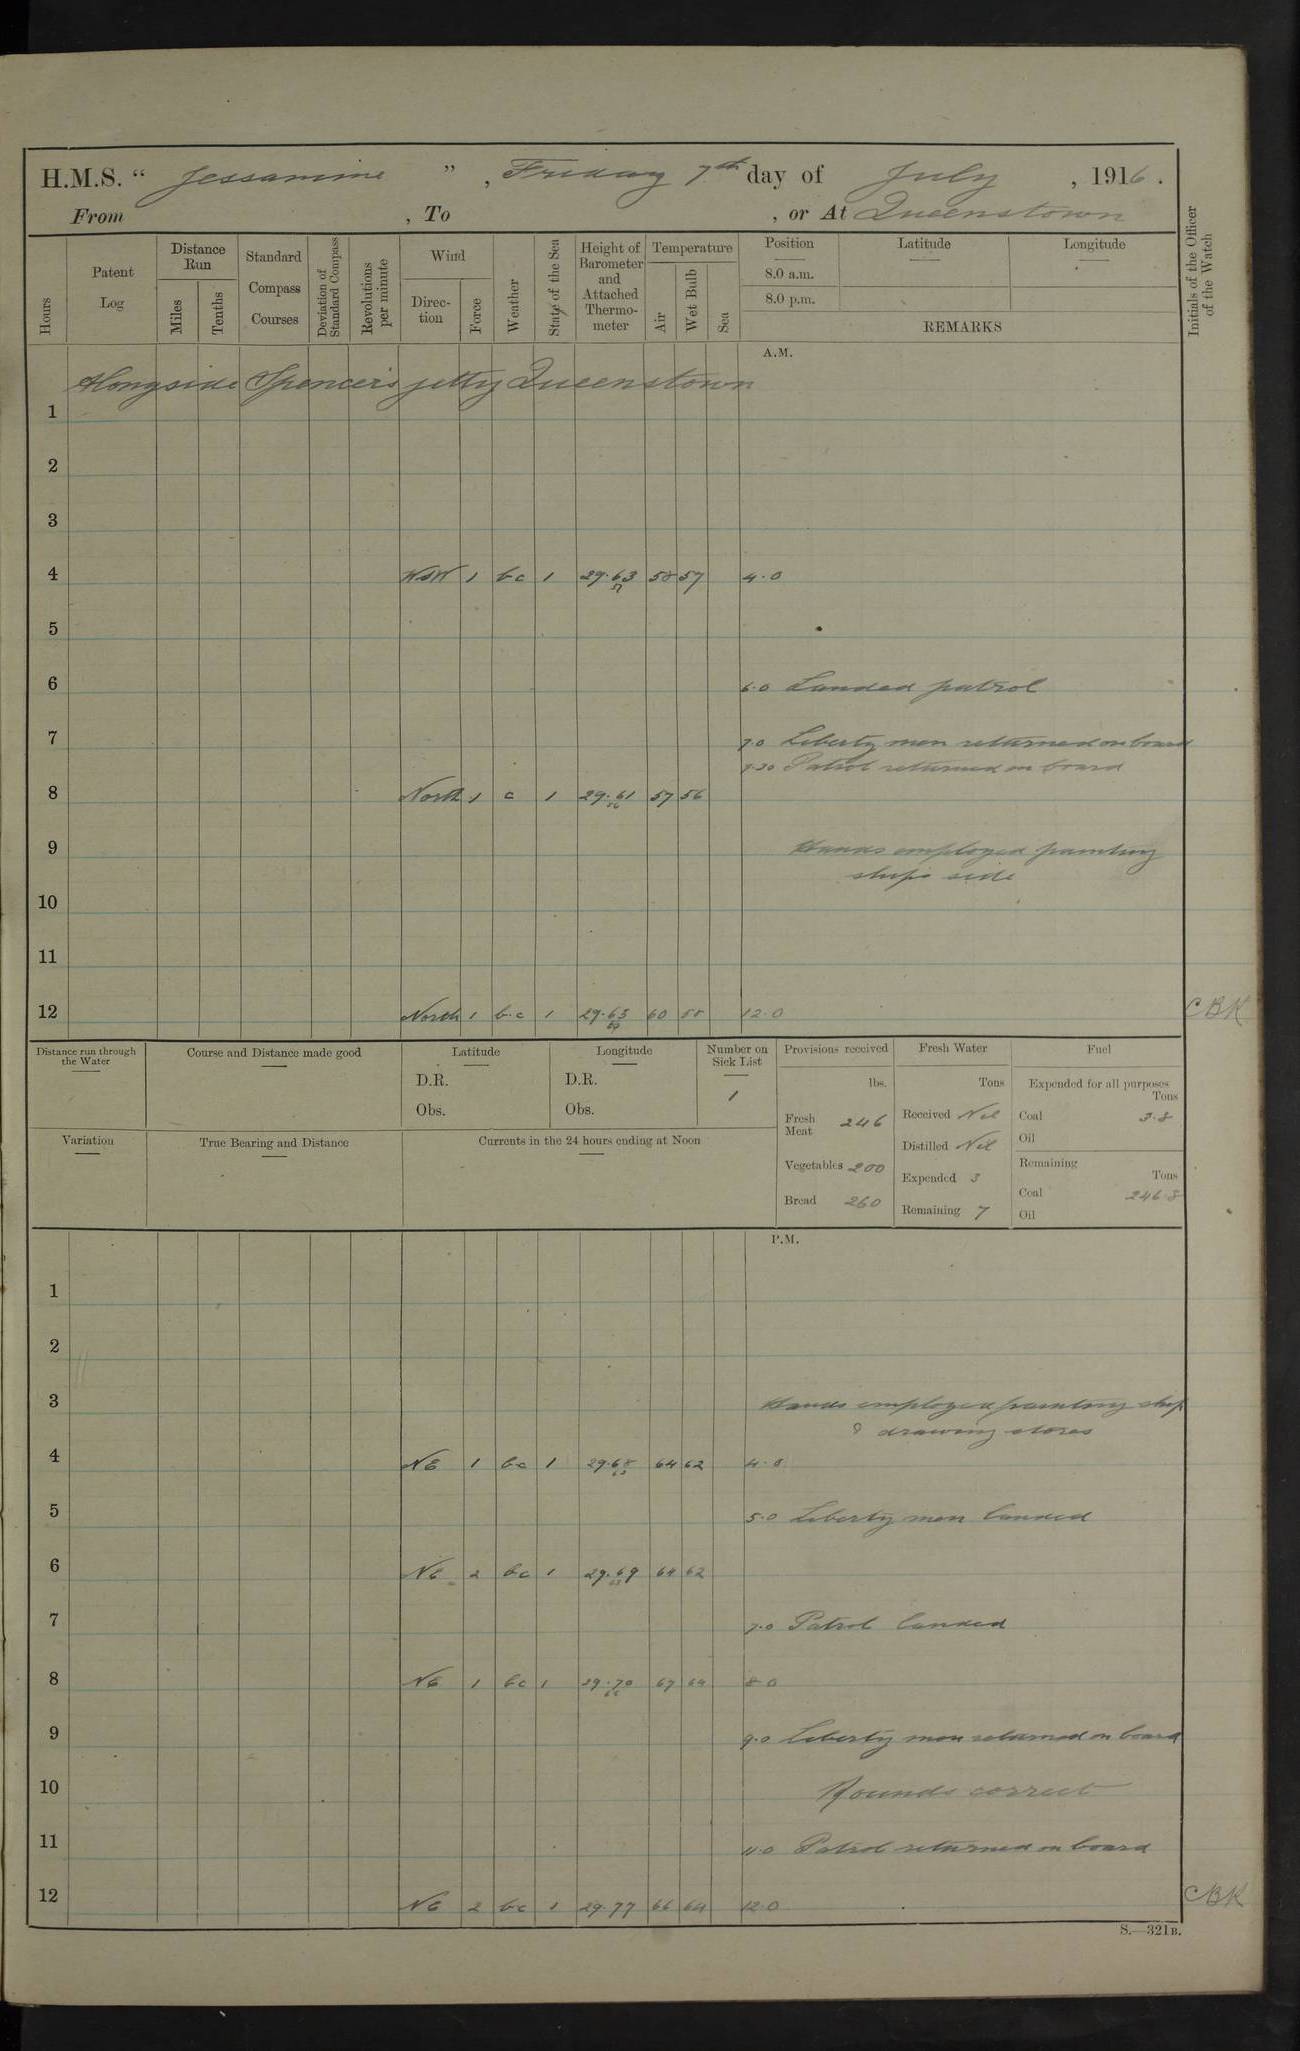 H.M.S. " Jessamine ", Friday 7th day of July, 1916.
From , To , or At Queenstown
Hours
Patent Log
Distance Run
Miles
Tenths
Standard Compass Courses
Deviation of Standard Compass
Revolutions per minute
Wind
Direction
Force
Weather
State of the Sea
Height of Barometer and Attached Thermometer
Temperature
Air
Wet Bulb
Sea
Position
Latitude
Longitude
8.0 a.m.
8.0 p.m.
REMARKS
Initials of the Officer of the Watch
A.M.
Alongside Spencer's jetty Queenstown
1
2
3
4 WSW 1 bc 1 29.63 57 58 57 4.0
5
6 6.0 Landed patrol
7 7.0 Liberty men returned on board
7.30 Patrol returned on board
8 North 1 c 1 29.61 56 57 56
9 Hands employed painting
ships side
10
11
12 North 1 b.c 1 29.65 59 60 58 12.0 CBK
Distance run through the Water
Course and Distance made good
Latitude
D.R.
Obs.
Longitude
D.R.
Obs.
Number on Sick List
1
Provisions received
lbs.
Fresh Meat 246
Vegetables 200
Bread 260
Fresh Water
Tons
Received Nil
Distilled Nil
Expended 3
Remaining 7
Fuel
Expended for all purposes
Tons
Coal 3.8
Oil
Remaining
Tons
Coal 246.8
Oil
Variation
True Bearing and Distance
Currents in the 24 hours ending at Noon
P.M.
1
2
3 Hands employed painting ship
& drawing stores
4 NE 1 bc 1 29.68 63 64 62 4.0
5 5.0 Liberty men landed
6 NE 2 bc 1 29.69 63 64 62
7 7.0 Patrol landed
8 NE 1 bc 1 29.70 67 64 8.0
9 9.0 Liberty men returned on board
10 Rounds correct
11 11.0 Patrol returned on board
12 NE 2 bc 1 29.77 66 64 12.0 CBK
S.—321B.